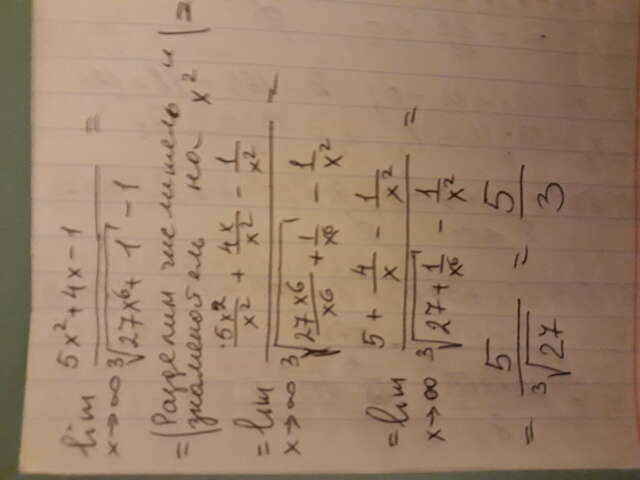 lim x→∞ (5x² + 4x − 1) / (∛(27x⁶ + 1) − 1) =
= | Разделим числитель и
знаменатель на x² | =
= lim x→∞ (5x²/x² + 4x/x² − 1/x²) / (∛(27x⁶/x⁶ + 1/x⁶) − 1/x²) =
= lim x→∞ (5 + 4/x − 1/x²) / (∛(27 + 1/x⁶) − 1/x²) =
= 5/∛27 = 5/3